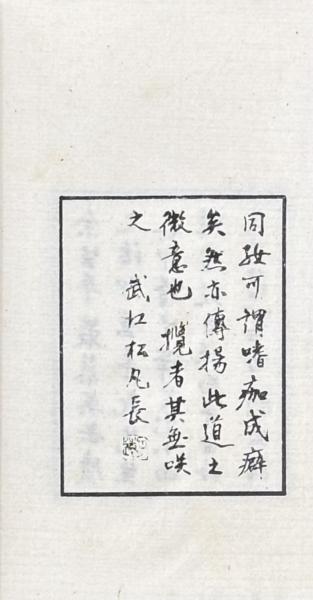 同好可謂嗜痂成癖
矣然亦傳揚此道之
微意也攬者其無哂
之 武江松凡長